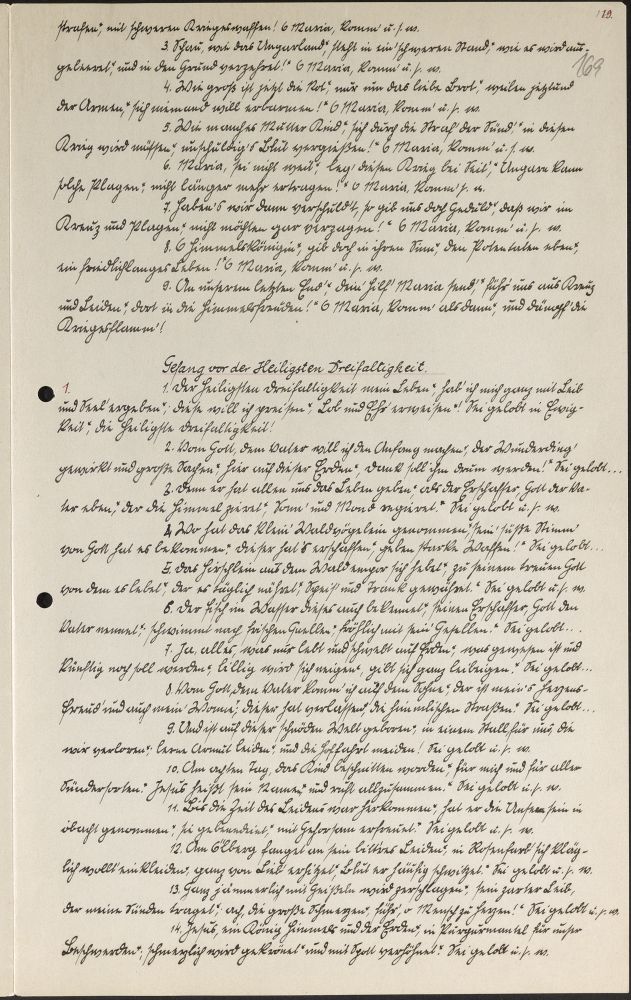 119.
169
strafen", mit schweren Kriegeswaffen! O Maria, komm' u. s. w.
3. Schau, wie das Ungarland", steht in ein' schweren Stand", wie es wird aus-
geleeret", und in den Grund verzehret!" O Maria, komm' u. s. w.
4. Wie groß ist jetzt die Not", nur um das liebe Brot", weilen jetzund
der Armen", sich niemand will erbarmen!" O Maria, komm' u. s. w.
5. Wie manches Mutter Kind", sich durch die Straf' der Sünd'", in diesen
Krieg wird müssen", unschuldig's Blut vergießen!" O Maria, komm' u. s. w.
6. Maria, sei nicht weit", leg' diesen Krieg bei Seit'", Ungarn kann
solche Plagen", nicht länger mehr ertragen!" O Maria, komm' u. s. w.
7. Haben's wir dann verschuld't, so gib uns doch Geduld", daß wir im
Kreuz und Plagen", nicht möchten gar verzagen!" O Maria, komm' u. s. w.
8. O Himmelskönigin", gib doch in ihren Sinn", den Potentaten eben",
ein friedlichlanges Leben!" O Maria, komm' u. s. w.
9. An unserem letzten End'", dein' Hilf' Maria send'", führ' uns aus Kreuz
und Leiden", dort in die Himmelsfreuden!" O Maria, komm' als dann", und dämpf' die
Kriegesflamm'!
Gesang vor der Heiligsten Dreifaltigkeit.
1. 1. Der heiligsten Dreifaltigkeit mein Leben", hab' ich mich ganz mit Leib
und Seel' ergeben", diese will ich preisen", Lob und Ehr' erweisen"! Sei gelobt in Ewig-
keit", die heiligste Dreifaltigkeit!
2. Vom Gott, dem Vater will ich den Anfang machen", der Wunderding'
gewirkt und große Sachen", hier auf dieser Erden", Dank soll ihm drum werden!" Sei gelobt...
3. Denn er hat allen uns das Leben geben", als der Erschaffer, Gott der Va-
ter eben", der die Himmel zieret", Sonn' und Mond regieret." Sei gelobt u. s. w.
4. Wo hat das klein' Waldvögelein genommen", sein' süße Stimm'
von Gott hat es bekommen", dieser hat's erschaffen", geben starke Waffen!" Sei gelobt...
5. Das Hirschlein aus dem Wald empor sich hebet", zu seinem treuen Gott
von dem es lebet", der es täglich nähret", Speis' und Trank gewähret." Sei gelobt u. s. w.
6. Der Fisch im Wasser dieses auch bekennet", seinen Erschaffer, Gott den
Vater nennet", schwimmt nach frischen Quellen", fröhlich mit sein' Gesellen." Sei gelobt...
7. Ja, alles, was nur lebt und schwebt auf Erden", was gewesen ist und
künftig noch soll werden", billig wird sich neigen", gibt sich ganz leibeigen." Sei gelobt...
8. Vom Gott, dem Vater komm' ich auf dem Sohne", der ist mein's Herzens-
freud' und auch mein' Wonne", dieser hat verlassen", die himmlischen Straßen." Sei gelobt...
9. Und ist auf dieser schnöden Welt geboren", in einem Stall für uns, die
wir verloren", lerne Armut leiden", und die Hoffahrt meiden! Sei gelobt u. s. w.
10. Am achten Tag, das Kind beschnitten worden", für mich und für aller
Sündersorten." Jesus heißt sein Namen", und ruft allzusammen." Sei gelobt u. s. w.
11. Bis die Zeit des Leidens war herkommen", hat er die Unsern sein in
obacht genommen", sei gebenedeiet", mit Gehorsam erfreuet." Sei gelobt u. s. w.
12. Am Ölberg fanget an sein bittres Leiden", in Rosenfarb' sich kläg-
lich wollt' einkleiden", ganz von Lieb' erhitzet", Blut er häufig schwitzet." Sei gelobt u. s. w.
13. Ganz jämmerlich mit Geißeln wird zerschlagen", sein zarter Leib,
der meine Sünden traget", ach, die große Schmerzen", führ', o Mensch zu Herzen!" Sei gelobt u. s. w.
14. Jesus, ein König Himmels und der Erden", in Purpurmantel für unser
Beschwerden", schmerzlich wird gekrönet" und mit Spott verhöhnet." Sei gelobt u. s. w.